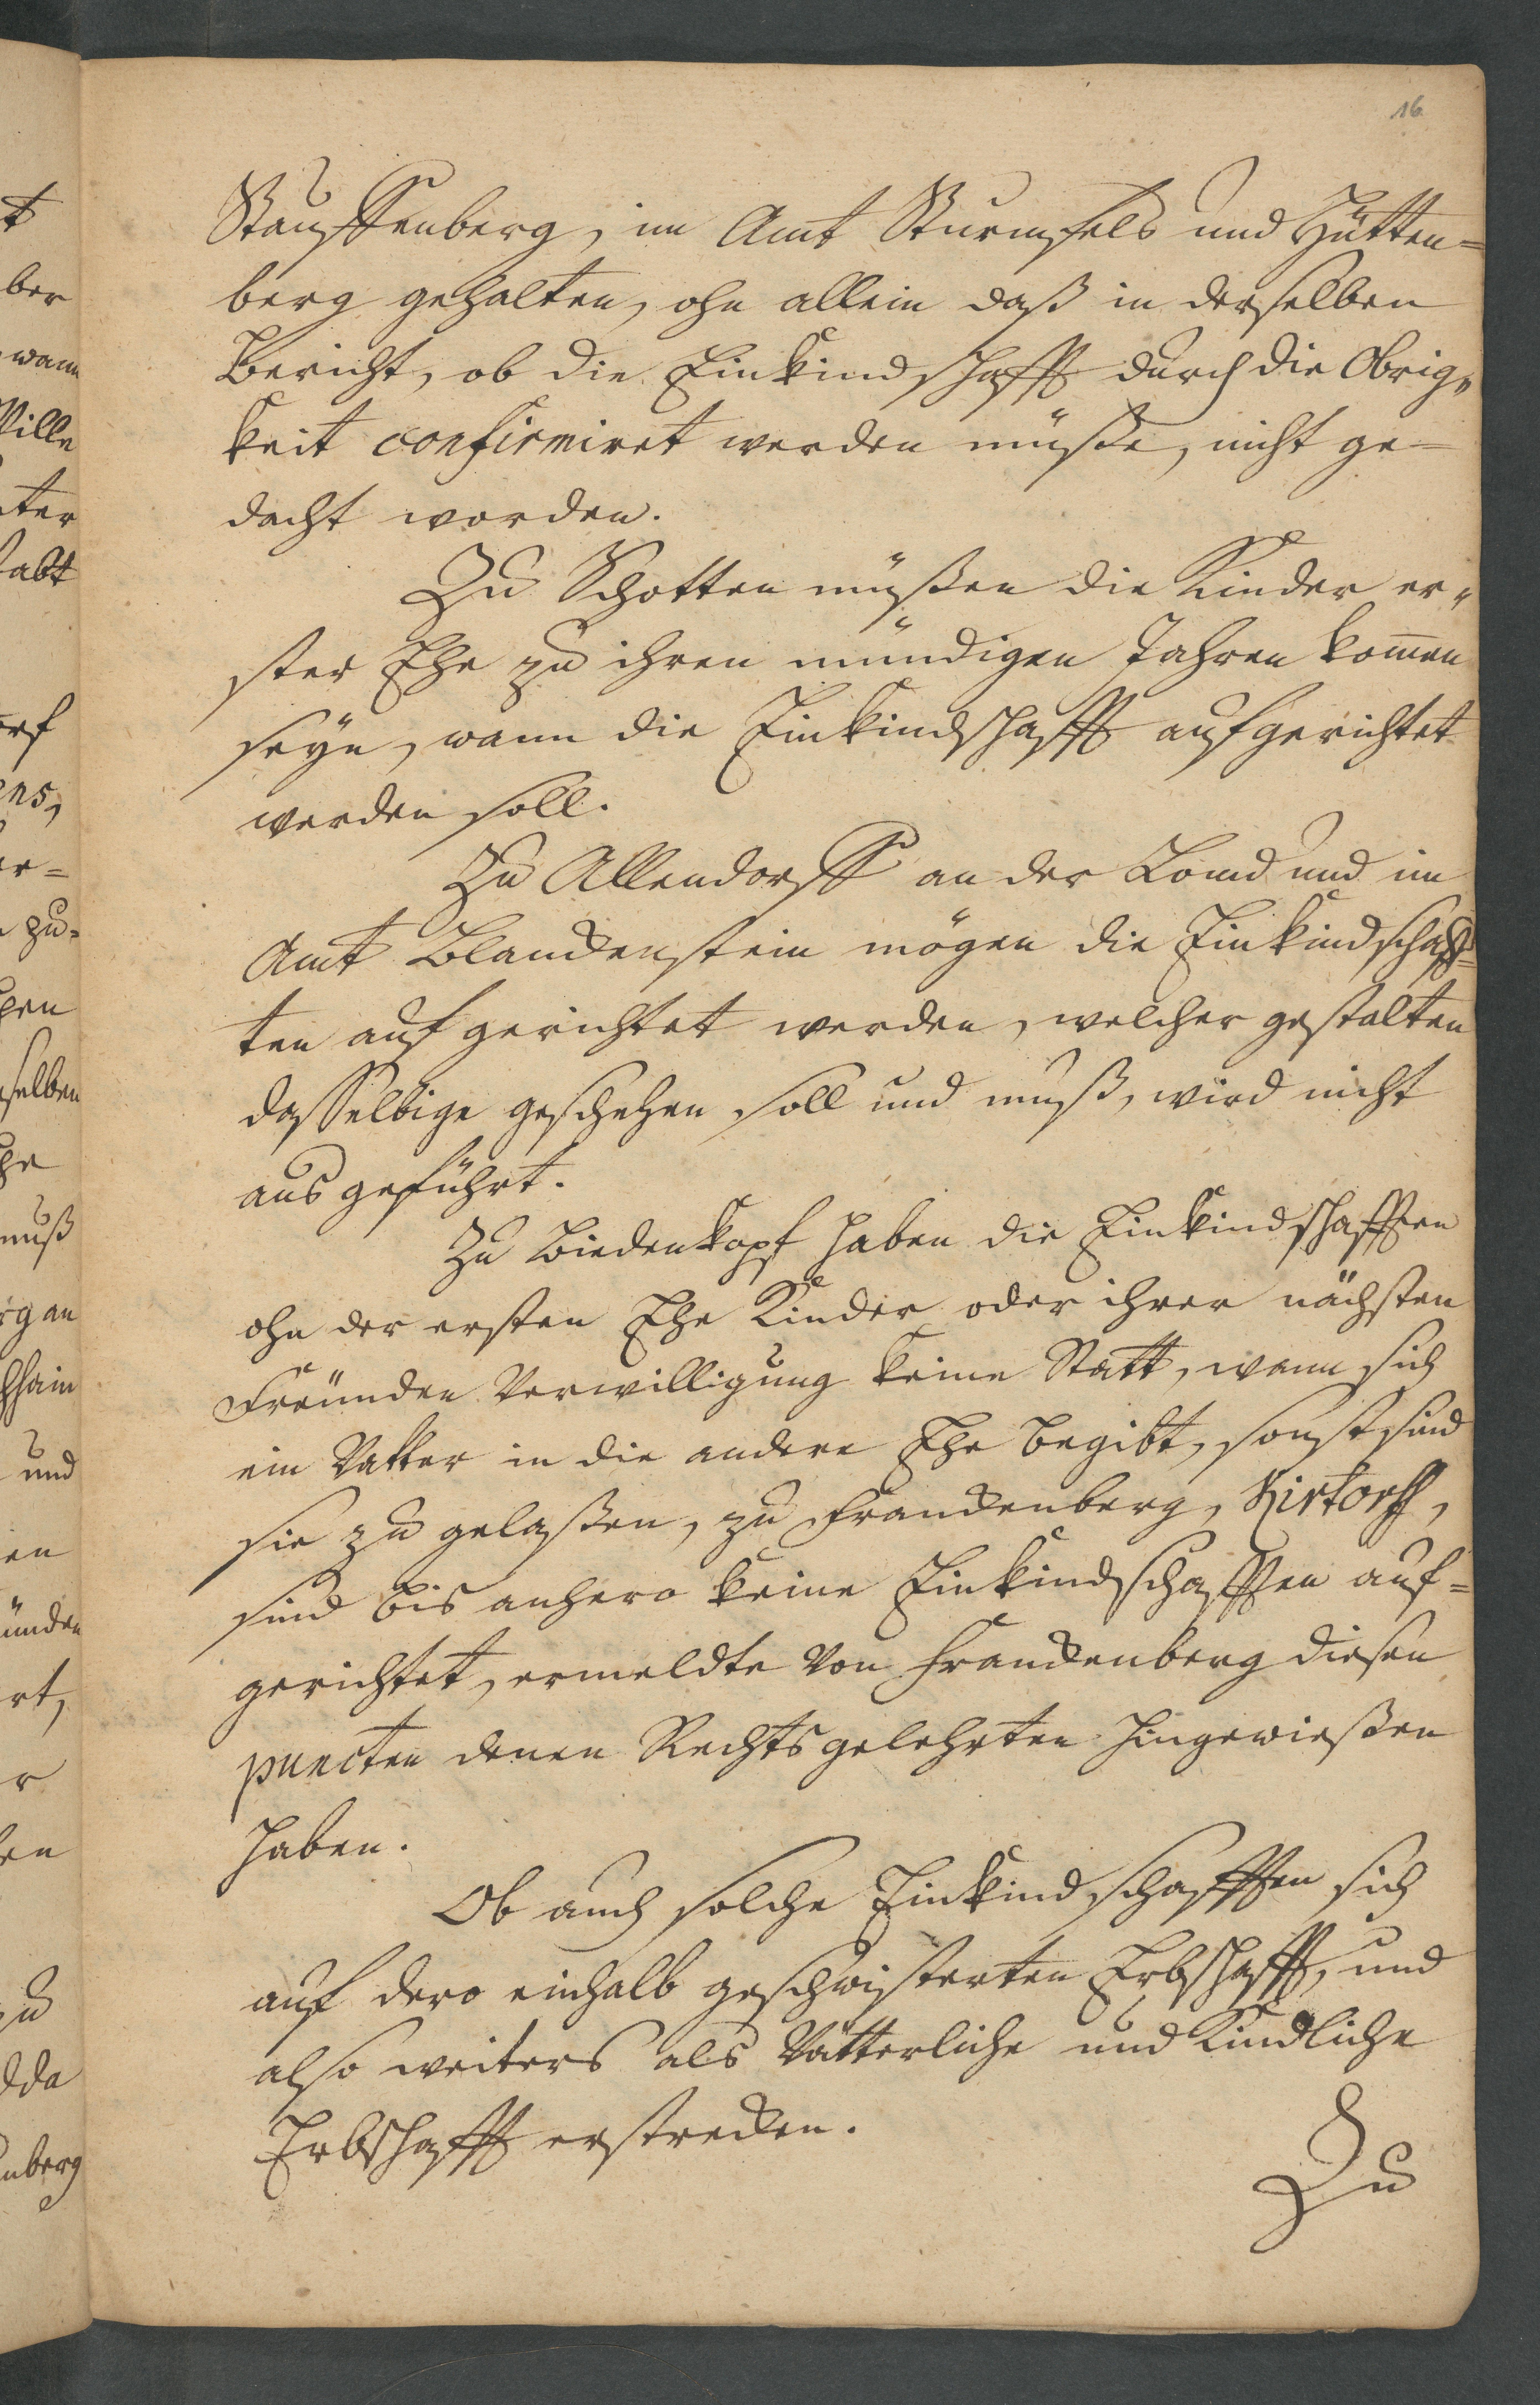 16
Stauffenberg, im Amt Sturmfels und Hütten=
berg gehalten, ohn allein daß in derselben
Bericht, ob die Einkindschafft durch die Obrig„
keit confirmiret werden müße, nicht ge=
dacht worden.
Zu Schotten müßen die Kinder er„
ster Ehe zu ihren mündigen Jahren kom̄en
seÿn, wann die Einkindschafft aufgerichtet
werden soll.
Zu Allendorff an der Lomd und im
Amt Blanckenstein mögen die Einkindschaff=
ten aufgerichtet werden, welcher gestalten
dasselbige geschehen soll und muß, wird nicht
ausgeführt.
Zu Biedenkopf haben die Einkindschafften
ohn der ersten Ehe Kinder oder ihrer nächsten
Freünden Verwilligung keine Statt, wann sich
ein Vatter in die andere Ehe begibt, sonst sind
sie zu gelaßen, zu Franckenberg, Kirtorff,
sind bis anhero keine Einkindschafften auf=
gerichtet, ermeldte von Franckenberg diesen
puncten denen Rechtsgelehrten hingewießen
haben.
Ob auch solche Einkindschafften sich
auf dero einhalb geschwisterten Erbschafft, und
also weiters als Vätterliche und Kindliche
Erbschafft erstrecken.
Zu
t
ber
wann
Wille
ter
abt
orf
ens,
er=
zu=
selben
he
muß
rgan
hhain
und
en
ünden
rt,
r
en
zu
dda
nberg